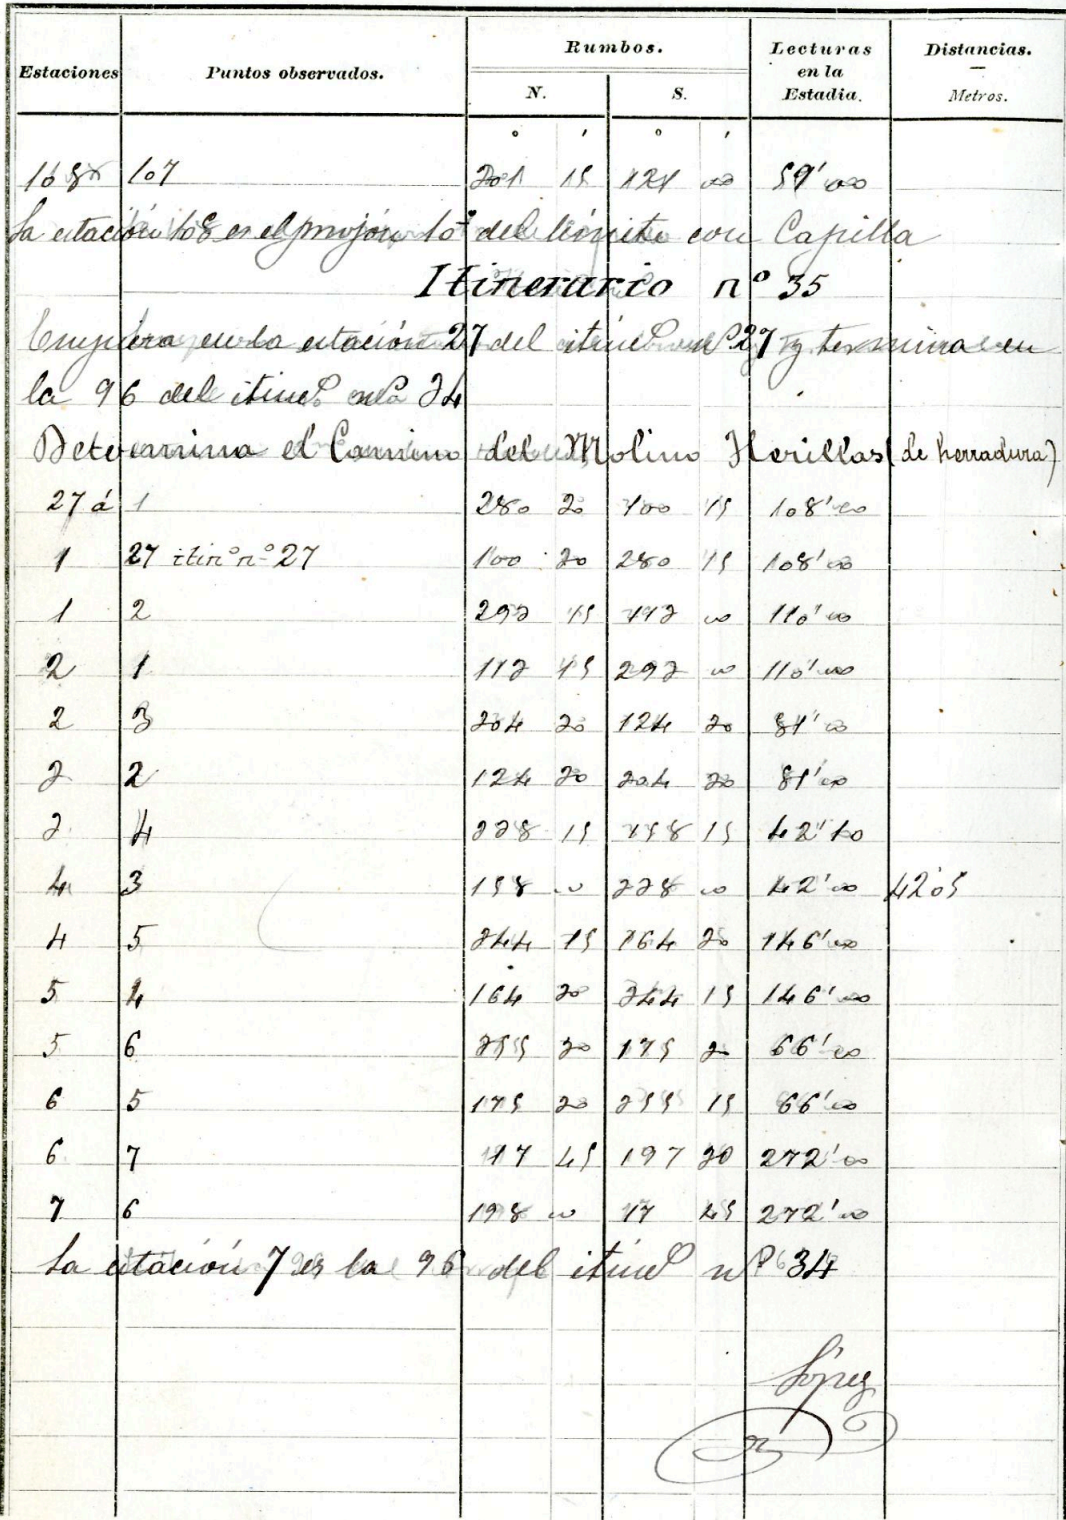 Estaciones Puntos observados. Rumbos. N. S. Lecturas en la Estadia. Distancias. — Metros.
° ′ ° ′
108 107 301 15 121 00 59'00
La estación 108 es el mojón 10º del límite con Capilla
Itinerario nº 35
Empieza en la estación 27 del itinº nº 27 y termina en
la 96 del itinº nº 34
Determina el Camino del Molino Herillas (de herradura)
27 á 1 280 30 100 15 108'00
1 27 itinº nº 27 100 30 280 15 108'00
1 2 293 15 113 00 110'00
2 1 113 15 293 00 110'00
2 3 304 30 124 30 81'00
3 2 124 30 304 30 81'00
3 4 338 15 158 15 42'10
4 3 158 00 338 00 42'00 42'05
4 5 344 15 164 30 146'00
5 4 164 30 344 15 146'00
5 6 355 30 175 30 66'00
6 5 175 30 355 15 66'00
6 7 17 45 197 30 272'00
7 6 198 00 17 45 272'00
La estación 7 es la 96 del itinº nº 34
López